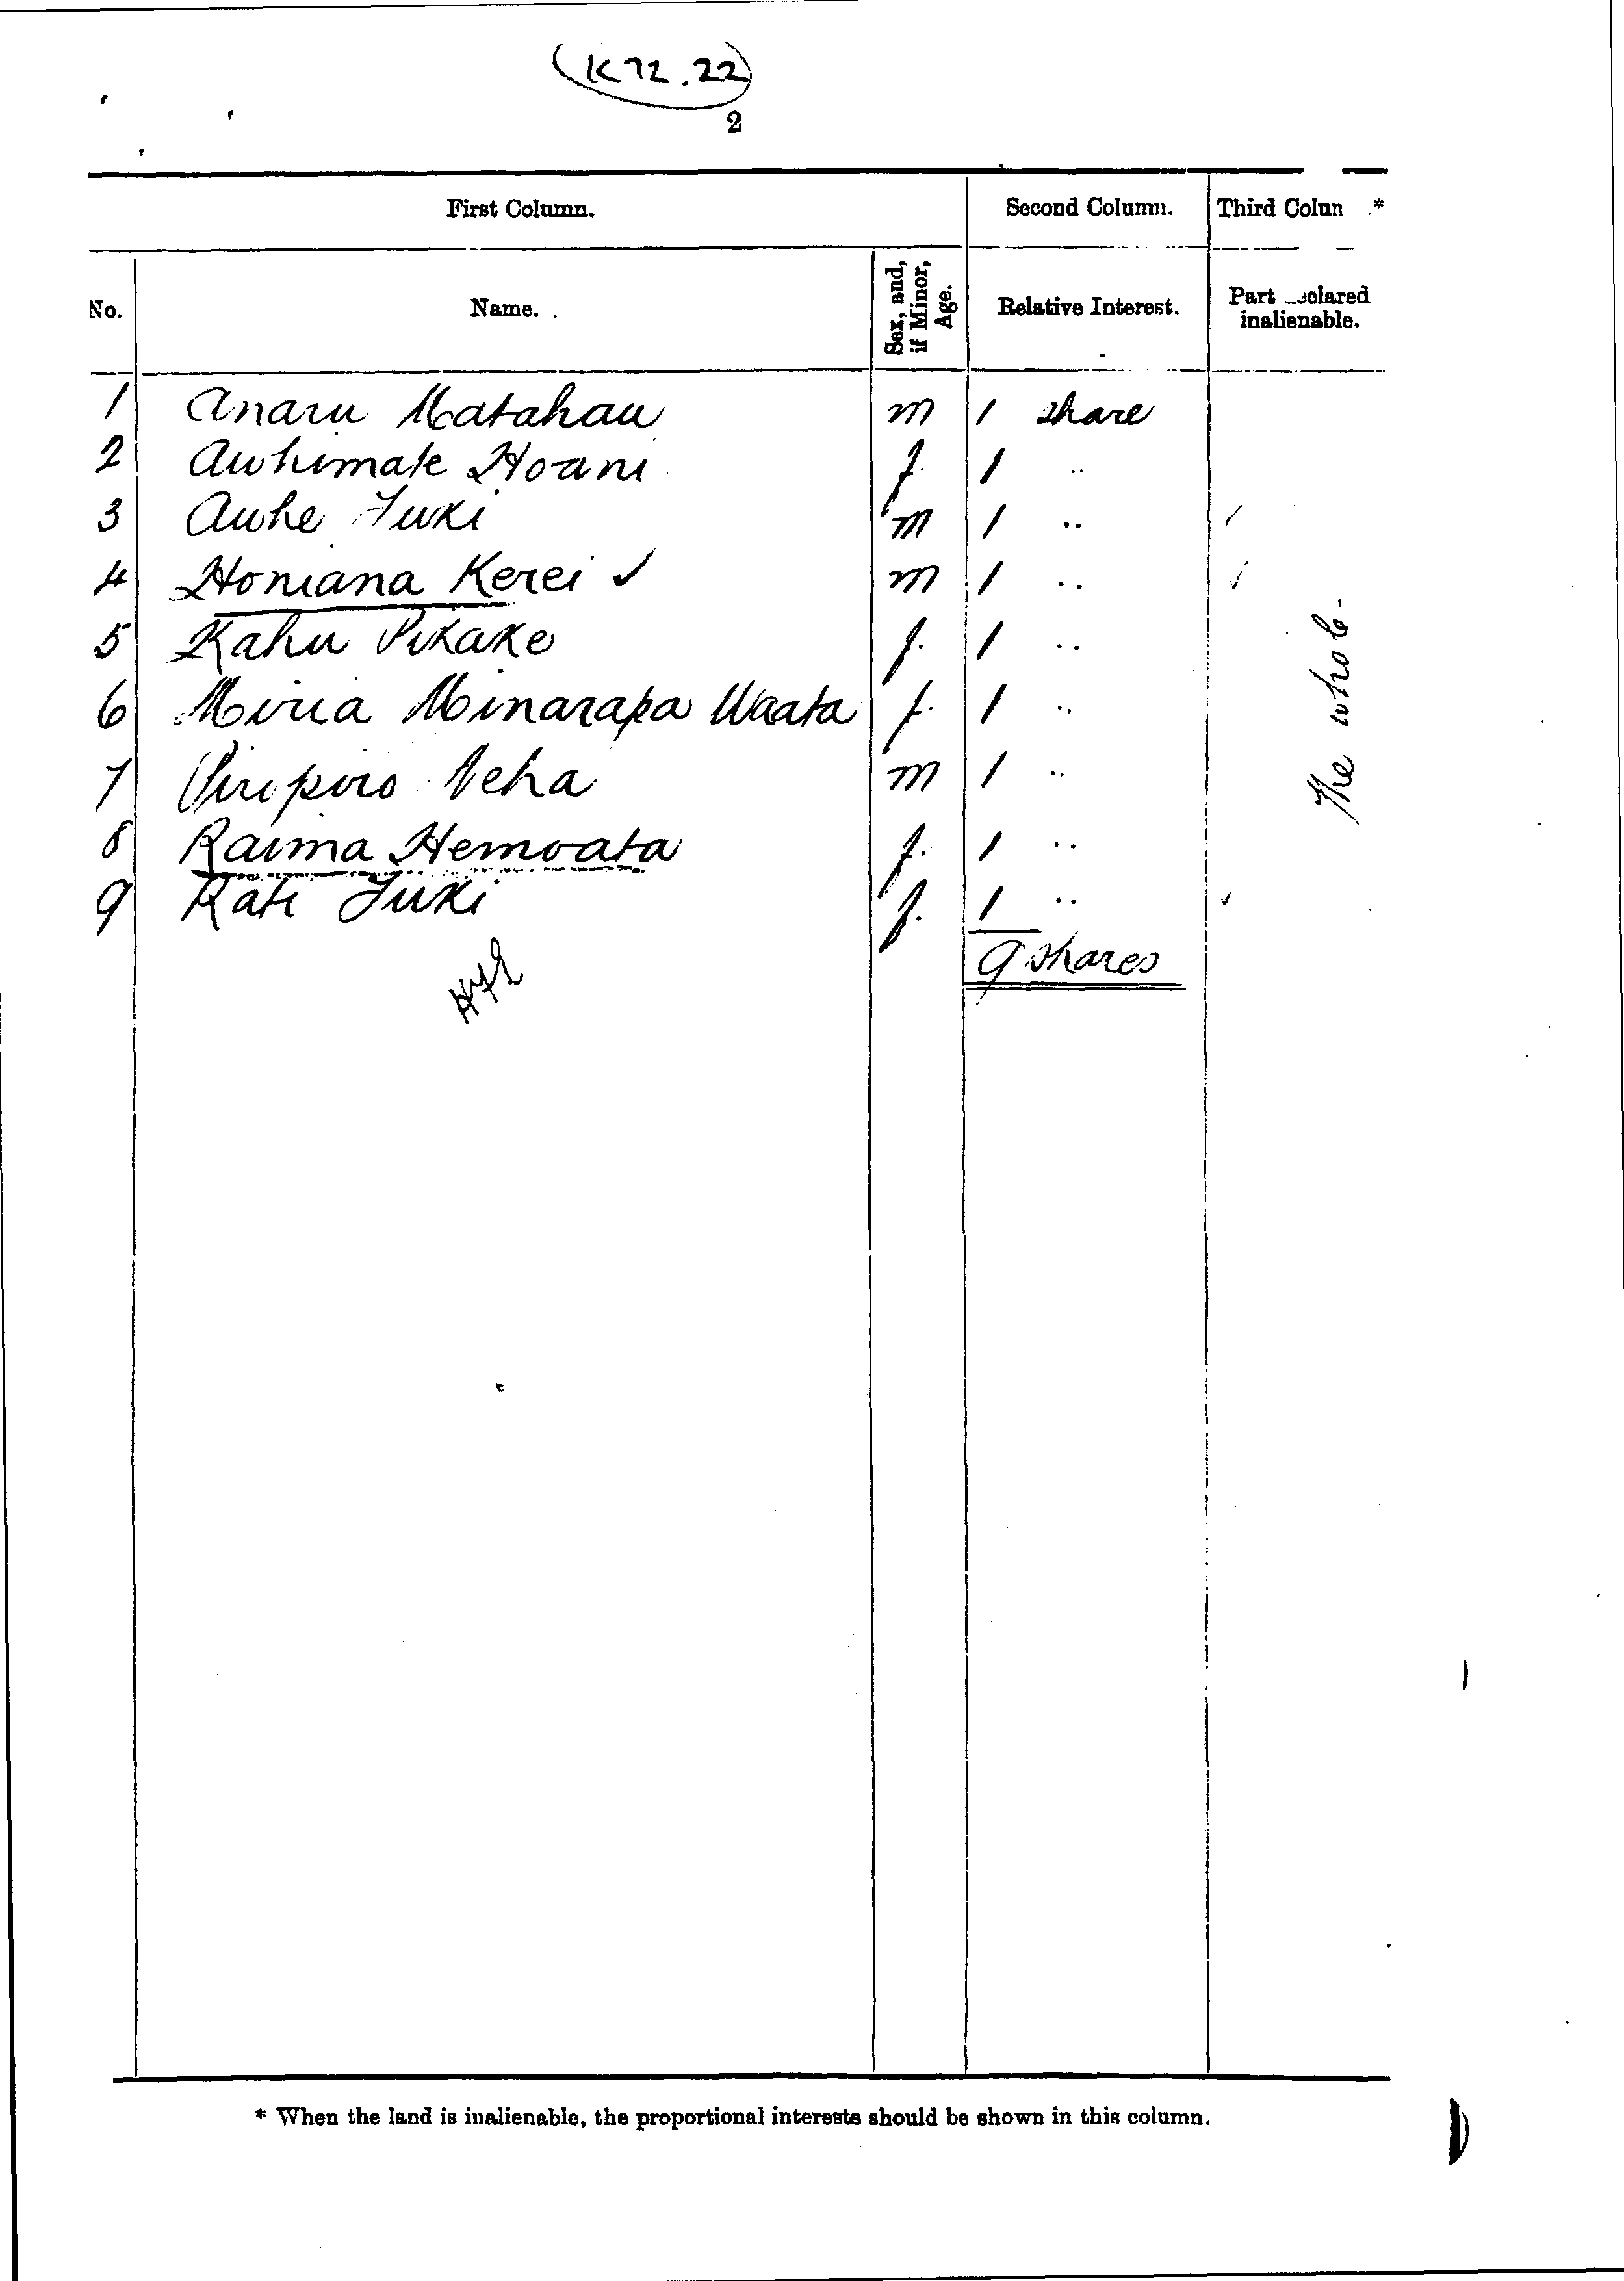 (K 72.22)
2
First Column. Second Column. Third Colun *
No. Name. Sex, and, if Minor, Age. Relative Interest. Part eclared inalienable.
1 Anaru Matahau m 1 share
2 Awhimate Hoani f. 1 ..
3 Auhe Tuki m 1 .. ✓
4 Honiana Kerei ✓ m 1 .. ✓
5 Kahu Pikake f. 1 ..
6 Miria Minarapa Waata f. 1 ..
7 Piripiro Neha m 1 ..
8 Raima Hemoata f. 1 ..
9 Rati Tuki f. 1 .. ✓
The whole
9 shares
* When the land is inalienable, the proportional interests should be shown in this column.